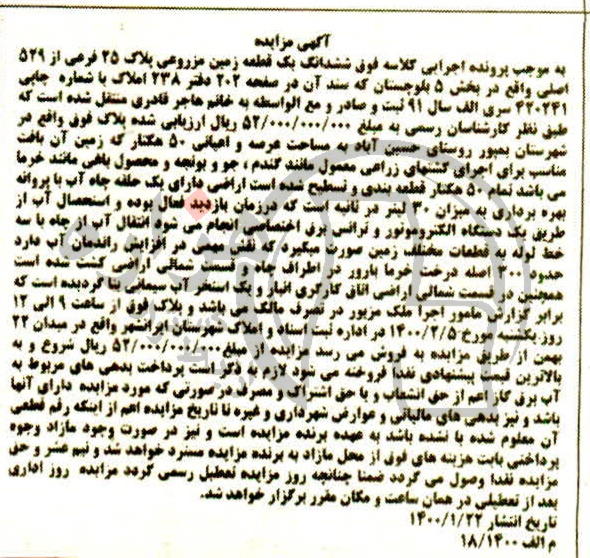 آگهی مزایده
به موجب پرونده اجرایی کلاسه فوق ششدانگ یک قطعه زمین مزروعی پلاک ۲۵ فرعی از ۵۲۹
اصلی واقع در بخش ۵ بلوچستان که سند آن در صفحه ۲۰۲ دفتر ۲۳۸ املاک با شماره چاپی
۴۲۰۲۴۱ سری الف سال ۹۱ ثبت و صادر و مع الواسطه به خانم هاجر قادری منتقل شده است که
طبق نظر کارشناسان رسمی به مبلغ ۵۲/۰۰۰/۰۰۰/۰۰۰ ریال ارزیابی شده پلاک فوق واقع در
شهرستان بمپور روستای حسین آباد به مساحت عرصه و اعیانی ۵۰ هکتار که زمین آن بافت
مناسب برای اجرای کشتهای زراعی معمول مانند گندم ، جو و یونجه و محصول باغی مانند خرما
می باشد تمام ۵۰ هکتار قطعه بندی و تسطیح شده است اراضی دارای یک حلقه چاه آب با پروانه
بهره برداری به میزان ۳۰ لیتر در ثانیه است که درزمان بازدید فعال بوده و استحصال آب از
طریق یک دستگاه الکتروموتور و ترانس برق اختصاصی انجام می شود انتقال آب از چاه با سه
خط لوله به قطعات مختلف زمین صورت میگیرد که نقش مهمی در افزایش راندمان آب دارد
حدود ۳۰۰ اصله درخت خرما بارور در اطراف چاه و قسمت شمالی اراضی کشت شده است
همچنین در قسمت شمالی اراضی اتاق کارگری انبار و یک استخر آب سیمانی بنا گردیده است که
برابر گزارش مامور اجرا ملک مزبور در تصرف مالک می باشد و پلاک فوق از ساعت ۹ الی ۱۲
روز یکشنبه مورخ ۱۴۰۰/۲/۵ در اداره ثبت اسناد و املاک شهرستان ایرانشهر واقع در میدان ۲۲
بهمن از طریق مزایده به فروش می رسد مزایده از مبلغ ۵۲/۰۰۰/۰۰۰/۰۰۰ ریال شروع و به
بالاترین قیمت پیشنهادی نقدا فروخته می شود لازم به ذکر است پرداخت بدهی های مربوط به
آب برق گاز اعم از حق انشعاب و یا حق اشتراک و مصرف در صورتی که مورد مزایده دارای آنها
باشد و نیز بدهی های مالیاتی و عوارض شهرداری و غیره تا تاریخ مزایده اعم از اینکه رقم قطعی
آن معلوم شده یا نشده باشد به عهده برنده مزایده است و نیز در صورت وجود مازاد وجوه
پرداختی بابت هزینه های فوق از محل مازاد به برنده مزایده مسترد خواهد شد و نیم عشر و حق
مزایده نقدا وصول می گردد ضمنا چنانچه روز مزایده تعطیل رسمی گردد مزایده روز اداری
بعد از تعطیلی در همان ساعت و مکان مقرر برگزار خواهد شد.
تاریخ انتشار ۱۴۰۰/۱/۲۲
م الف ۱۸/۱۴۰۰